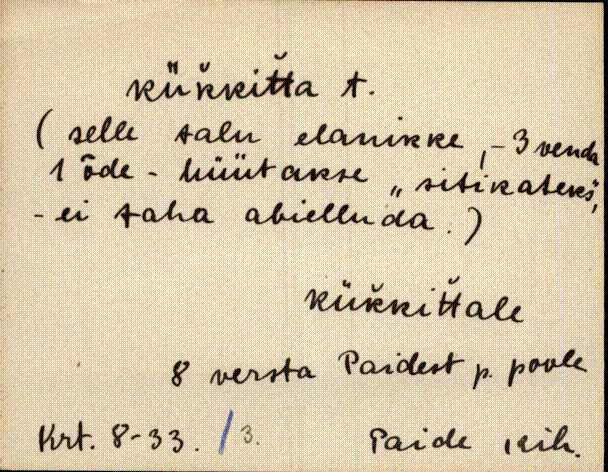 kük̆kit̆ta t.
( selle talu elanikke, - 3 venda
1 õde - hüütakse „sitikateks",
- ei taha abielluda. )
kük̆kit̆tale
8 versta Paidest p. poole
Krt. 8-33. / 3. Paide kih.